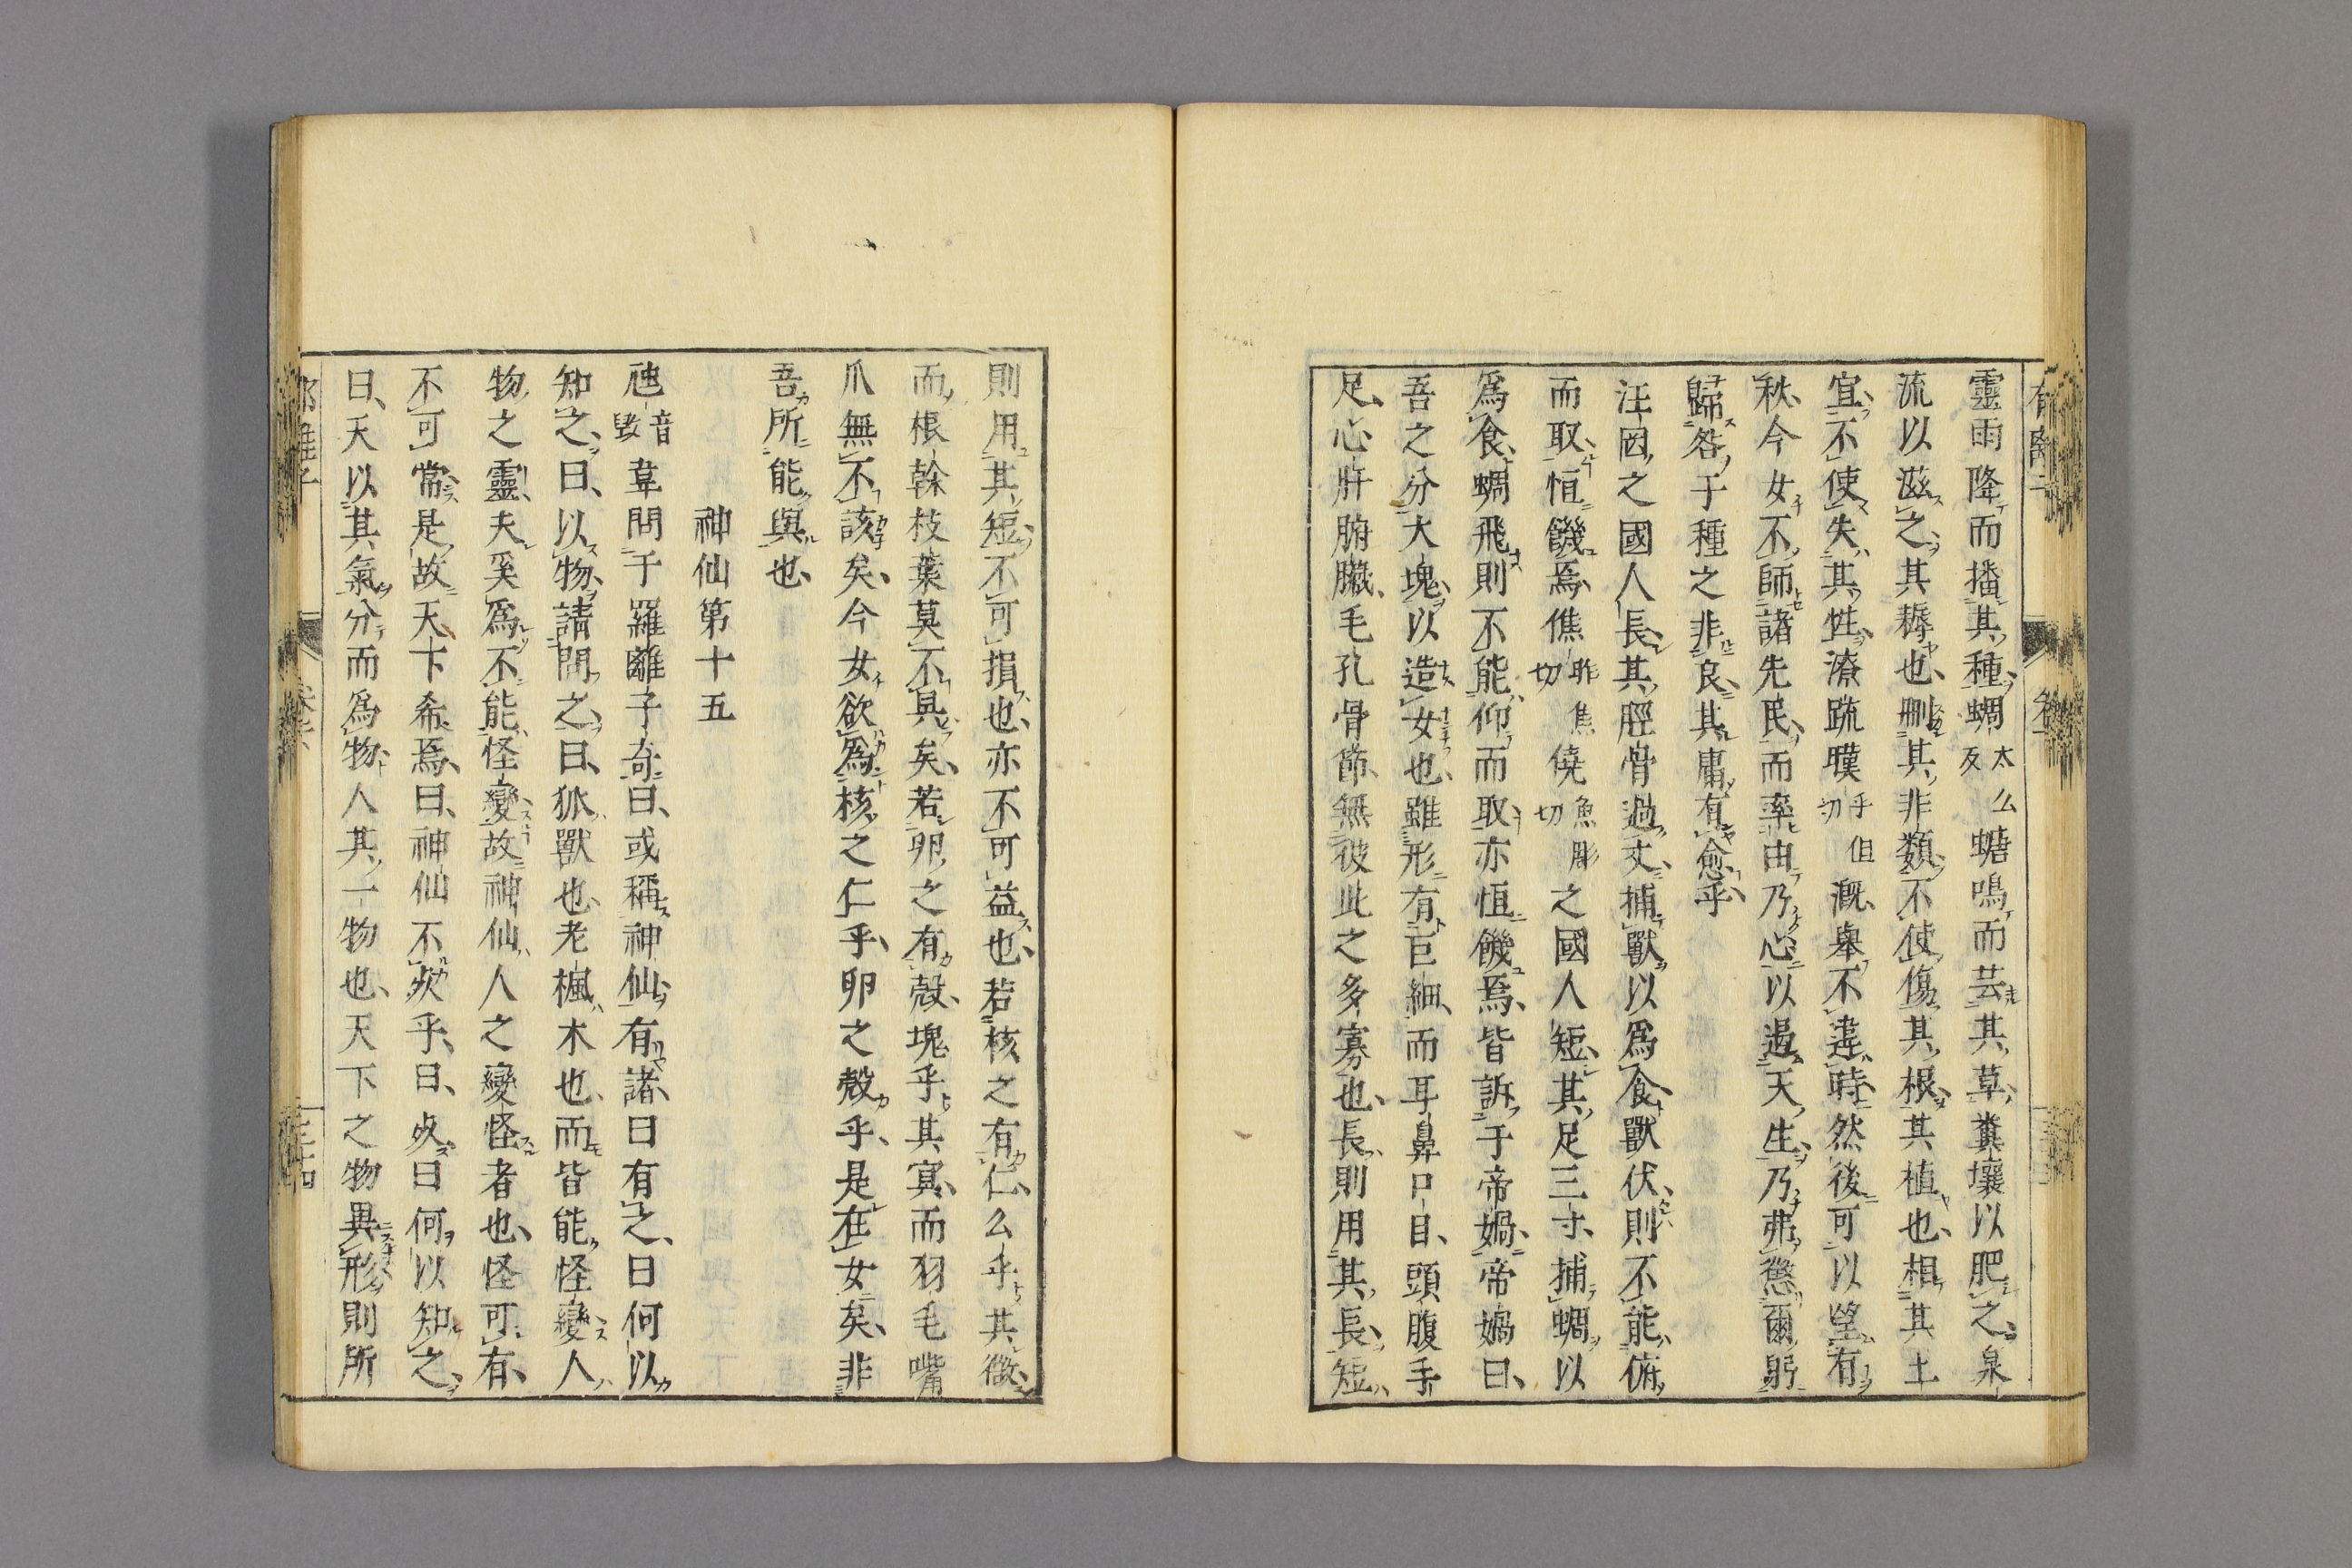 靈雨降而播其種蜩太么反螗鳴而芸其草糞壤以肥之泉
流以滋之其耨也刪其非類不使傷其根其植也相其土
宜不使失其性潦疏暵乎但切溉舉不違時然後可以望有
秋今女不師諸先民而率由乃心以遏天生乃弗懲爾躬
歸咎于種之非良其庸有愈乎
汪罔之國人長其脛骨過丈捕獸以爲食獸伏則不能俯
而取恒饑焉僬昨焦切僥魚彫切之國人短其足三寸捕蜩以
爲食蜩飛則不能仰而取亦恒饑焉皆訴于帝媧帝媧曰
吾之分大塊以造女也雖形有巨細而耳鼻口目頭腹手
足心肝腑臟毛孔骨節無彼此之多寡也長則用其長短
則用其短不可損也亦不可益也若核之有仁么乎其微
而根幹枝葉莫不具矣若卵之有殼塊乎其冥而羽毛嘴
爪無不該矣今女欲爲核之仁乎卵之殼乎是在女矣非
吾所能與也
神仙第十五
虺音毀韋問于羅離子奇曰或稱神仙有諸曰有之曰何以
知之曰以物請問之曰狐獸也老楓木也而皆能怪變人
物之靈夫奚爲不能怪變故神仙人之變怪者也怪可有
不可常是故天下希焉曰神仙不死乎曰死曰何以知之
曰天以其氣分而爲物人其一物也天下之物異形則所
郁離子
卷下
三十四